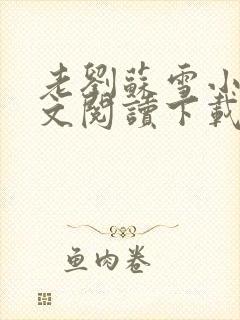 老劉蘇雪小
文閱讀下載
魚肉卷